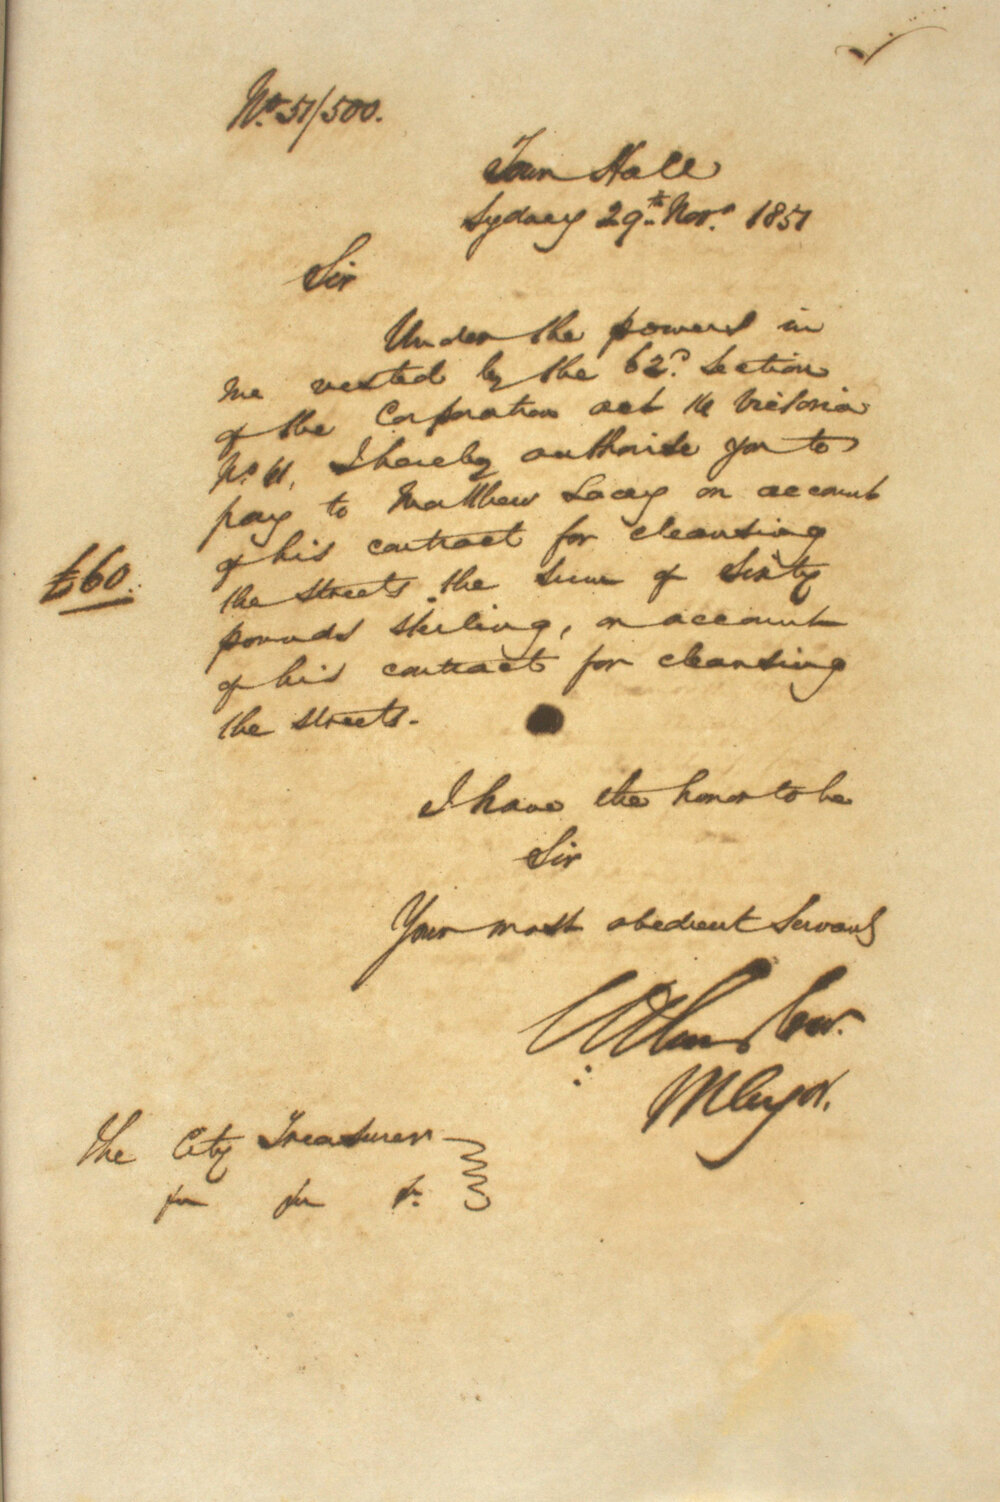 No. 51/500.
Town Hall
Sydney 29th Novr. 1851
Sir
Under the powers in
me vested by the 62d. Section
of the Corporation act 14 Victoria
No. 41, I hereby authorise you to
pay to Matthew Lacey on account
of his contract for cleansing
£60.
the streets the sum of Sixty
pounds sterling, on account
of his contract for cleansing
the streets.
I have the honor to be
Sir
Your most obedient Servant
Mayor.
The City Treasurer